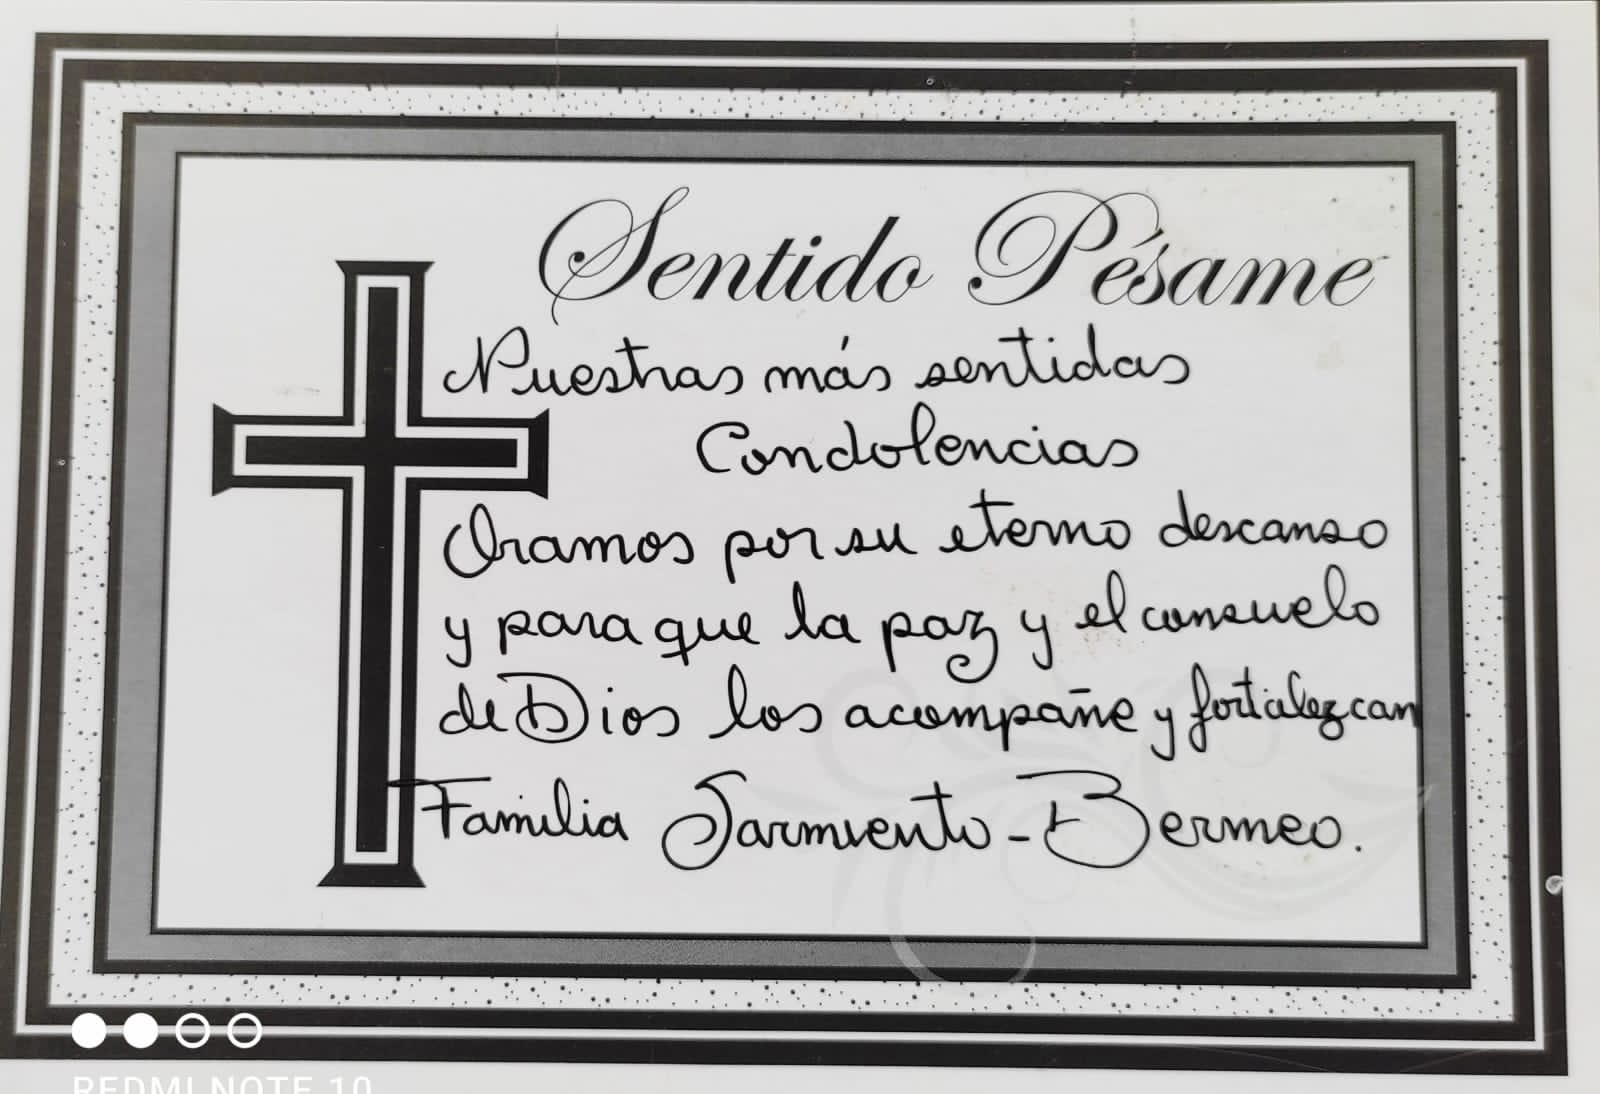 Sentido Pésame
Nuestras más sentidas
Condolencias
Oramos por su eterno descanso
y para que la paz y el consuelo
de Dios los acompañe y fortalezcan
Familia Sarmiento-Bermeo.
REDMI NOTE 10